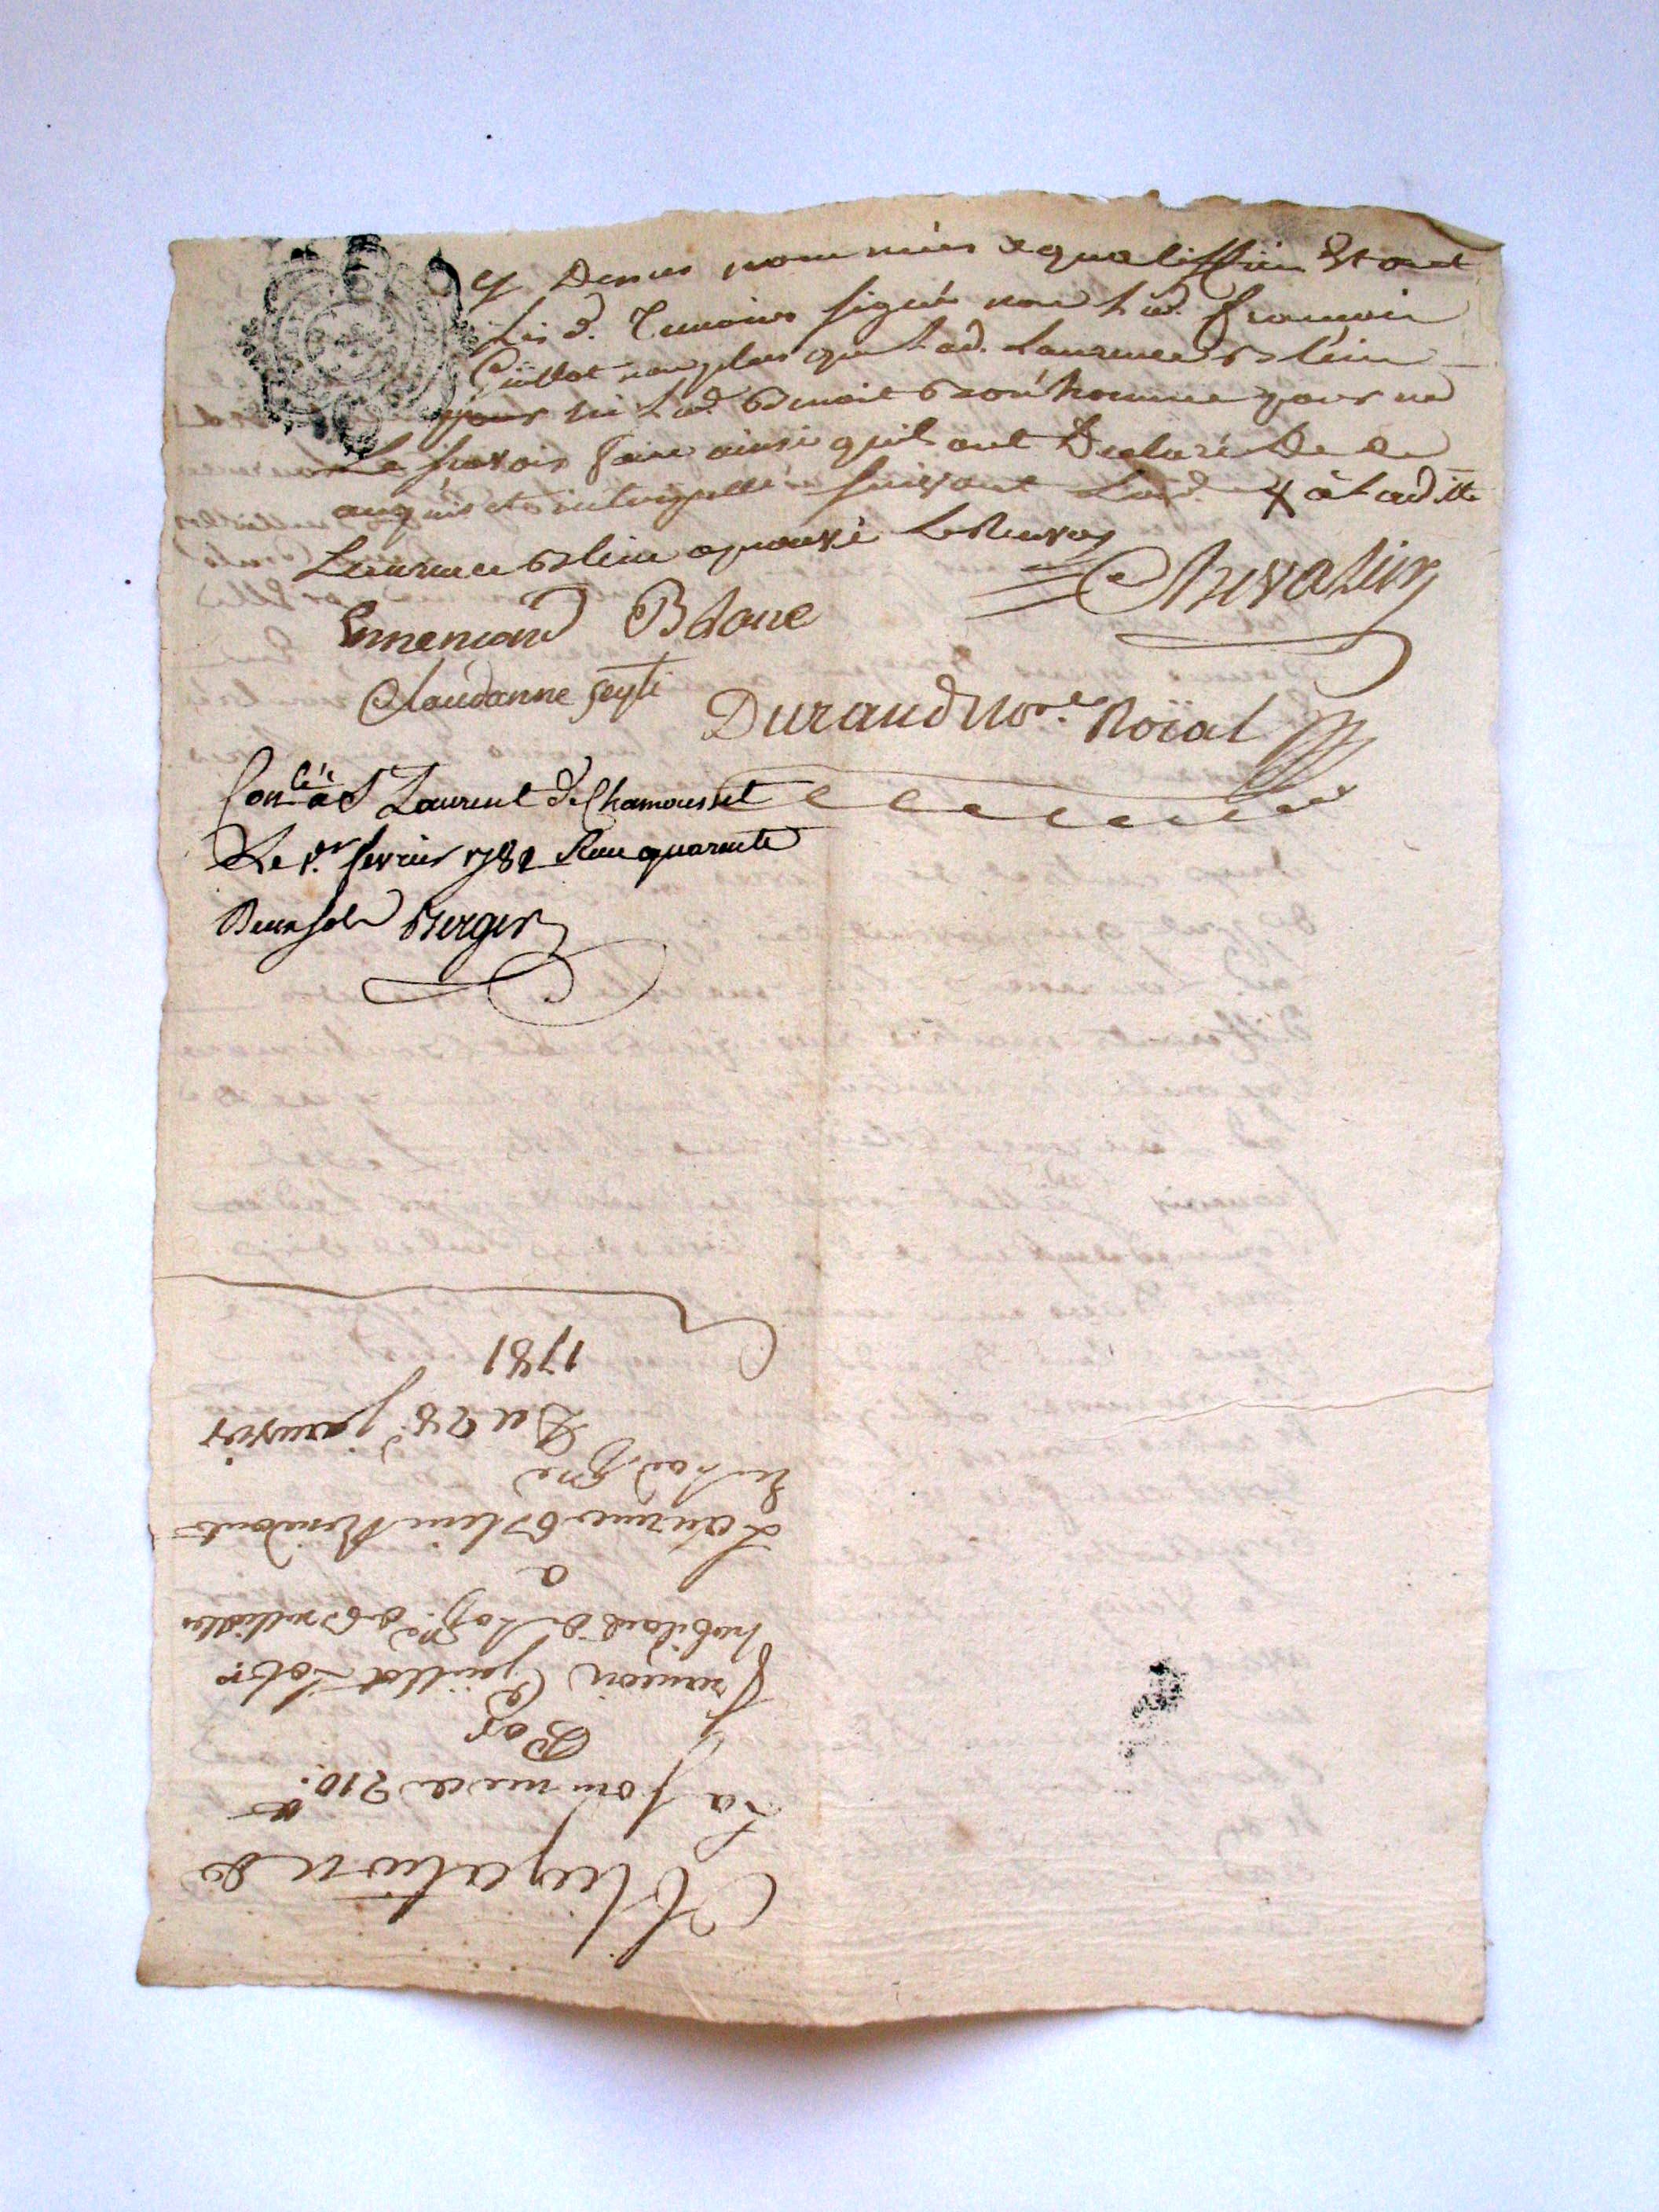 cy Dessus nommés & qualiffiés Et ont
Les d. Temoins signé non Led. françois
Guillot non plus que Lad. Laurence Blein
ni Led. Benoit Bron'homme pour ne
Le sçavoir faire ainsi quil ont Declaré De ce
enquis et interpellé suivant Lord. X à Laditte
Laurence Blein aprouvé Le Renvoy
Chevalier
Ennemond Blanc
Claudanne
Durand No.re Roïal
Con.lé à S Laurent de Chamousset
Le 1.er fevrier 1781 Reçu quarante
Deux sols Berger
Obligation de
La somme de 210.#
Par
François Guillot Lab.r
habitant de La p.sse de Brullioles
a
Laurence Blein Residante
en Lad. p.sse
Du 28.e janvier
1781